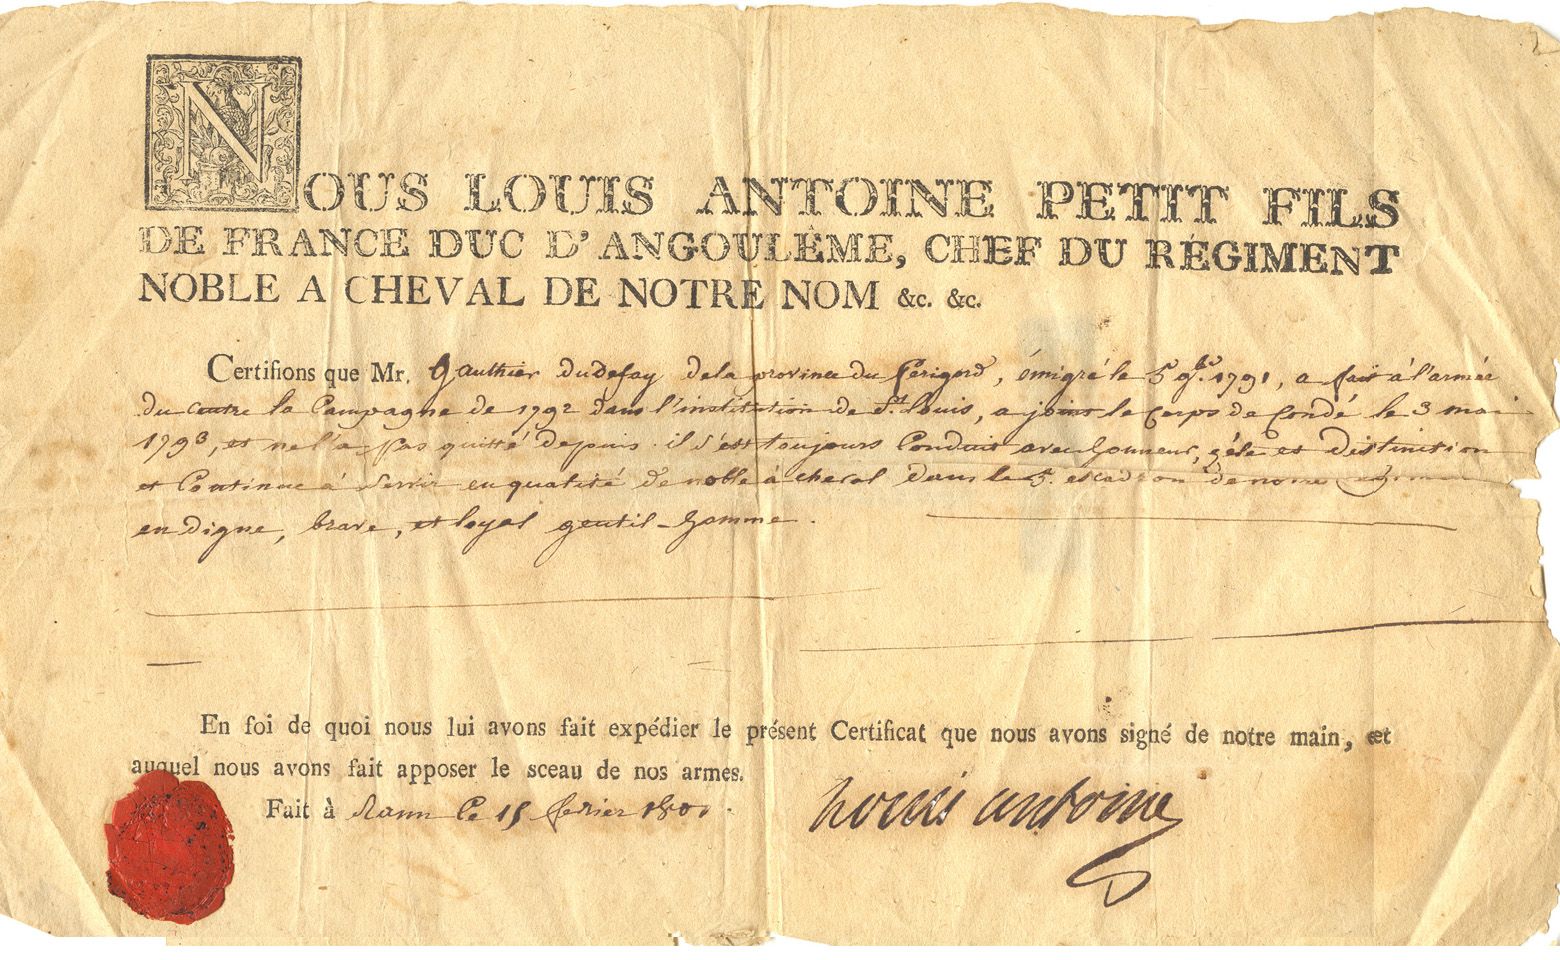 NOUS LOUIS ANTOINE PETIT FILS
DE FRANCE DUC D'ANGOULÊME, CHEF DU RÉGIMENT
NOBLE A CHEVAL DE NOTRE NOM &c. &c.
Certifions que Mr. Gauthier dudefay dela province du Périgord, émigré le 5 9bre 1791, a fait à l'armée
du centre la Campagne de 1792 dans l'institution de St. Louis, a joint le corps de Condé le 3 mai
1793, et ne l'a pas quitté depuis. il s'est toujours Conduit avec honneur, zéle et distinction
et Continue à Servir en qualité de noble à cheval dans le 5. escadron de notre
en digne, brave, et loyal gentil-homme.
En foi de quoi nous lui avons fait expédier le présent Certificat que nous avons signé de notre main, et
auquel nous avons fait apposer le sceau de nos armes.
Fait à Rann le 15 fevrier 1801.
Louis antoine